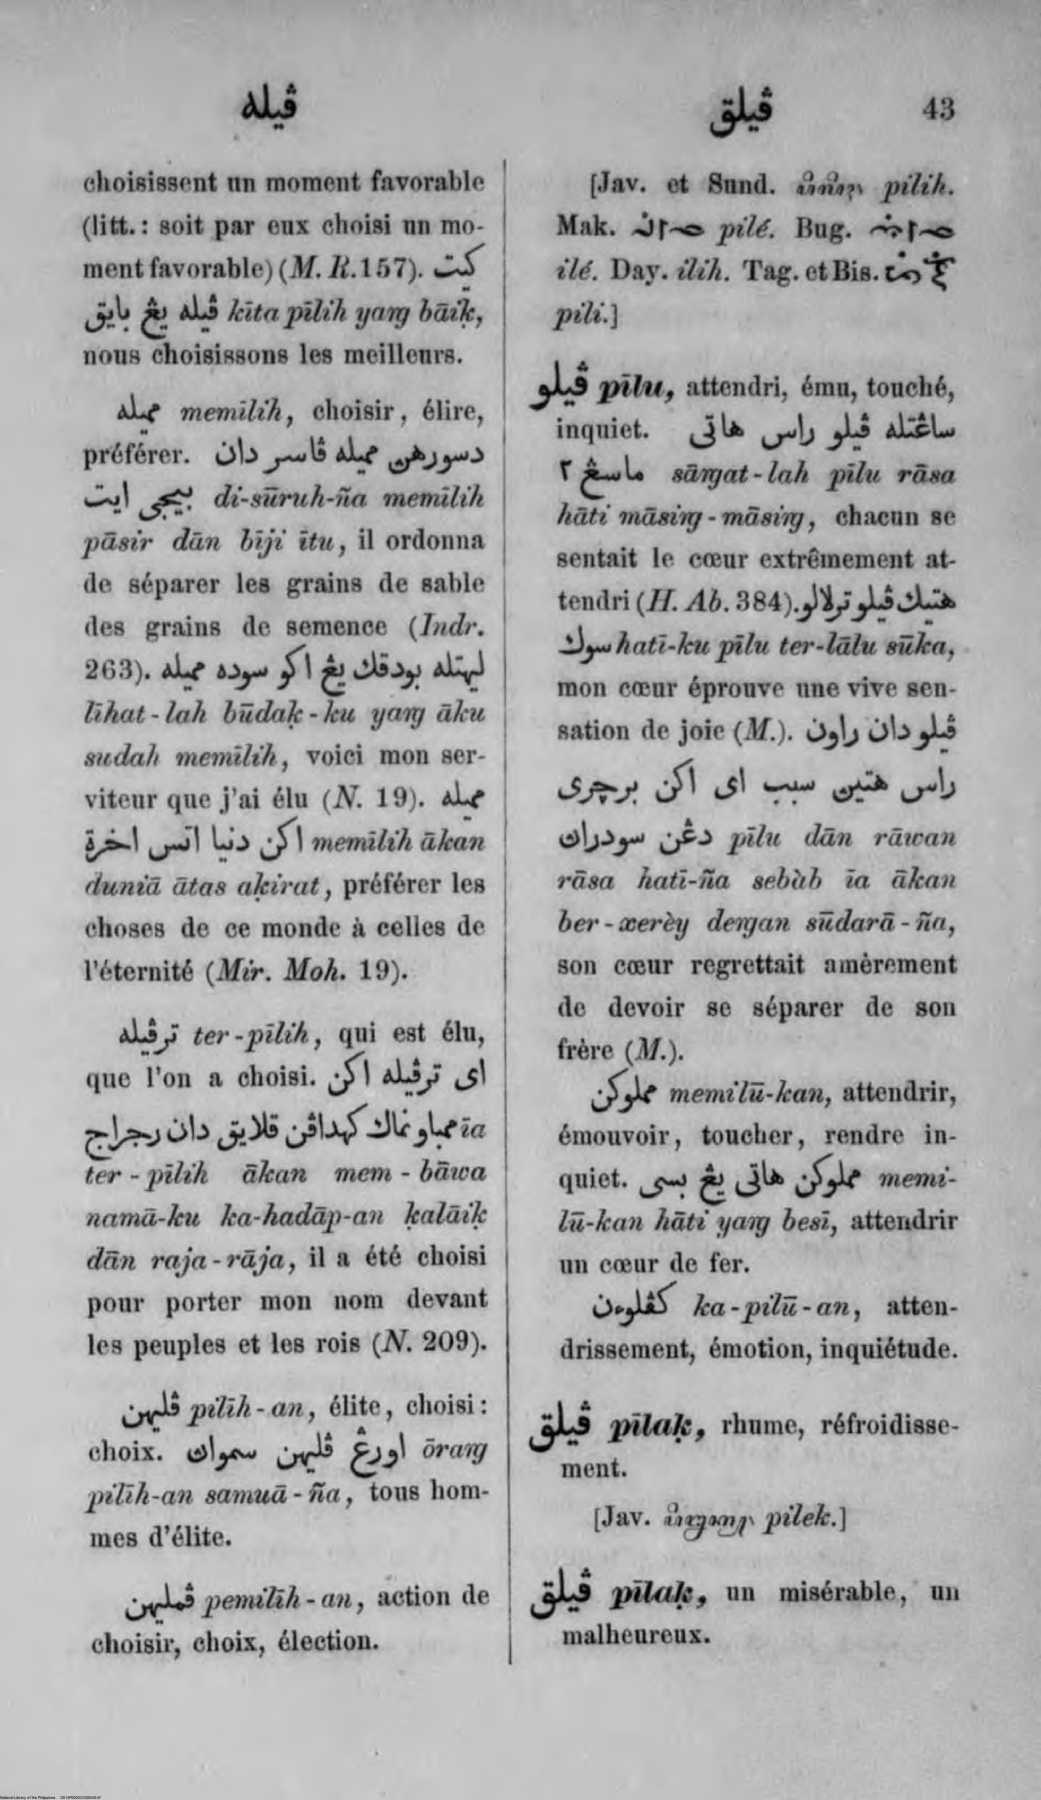 ڤيله
ڤيلق 43
choisissent un moment favorable
(litt.: soit par eux choisi un mo-
ment favorable) (M. R. 157). كيت
ڤيله يڠ بايق kīta pīlih yaṅg bāiḳ,
nous choisissons les meilleurs.
مميله memīlih, choisir, élire,
préférer. دسورهن مميله ڤاسر دان
بيجي ايت di-sūruh-ña memīlih
pāsir dān bīji ītu, il ordonna
de séparer les grains de sable
des grains de semence (Indr.
263). ليهتله بودقك يڠ اكو سوده مميله
līhat-lah būdaḳ-ku yaṅg āku
sudah memīlih, voici mon ser-
viteur que j'ai élu (N. 19). مميله
اكن دنيا اتس اخرة memīlih ākan
duniā ātas aḳirat, préférer les
choses de ce monde à celles de
l'éternité (Mir. Moh. 19).
ترڤيله ter-pīlih, qui est élu,
que l'on a choisi. اي ترڤيله اكن
ممباو نماك كهداڤن قلايق دان رجراج īa
ter-pīlih ākan mem-bāwa
namā-ku ka-hadāp-an ḳalāiḳ
dān raja-rāja, il a été choisi
pour porter mon nom devant
les peuples et les rois (N. 209).
ڤليهن pilīh-an, élite, choisi:
choix. اورڠ ڤليهن سموان ōraṅg
pilīh-an samuā-ña, tous hom-
mes d'élite.
ڤمليهن pemilīh-an, action de
choisir, choix, élection.
[Jav. et Sund. pilih.
Mak. pilé. Bug.
ilé. Day. ilih. Tag. et Bis.
pili.]
ڤيلو pīlu, attendri, ému, touché,
inquiet. ساڠتله ڤيلو راس هاتي
ماسڠ ٢ sāṅgat-lah pīlu rāsa
hāti māsiṅg-māsiṅg, chacun se
sentait le cœur extrêmement at-
tendri (H. Ab. 384). هتيك ڤيلو ترلالو
سوك hatī-ku pīlu ter-lālu sūka,
mon cœur éprouve une vive sen-
sation de joie (M.). ڤيلو دان راون
راس هتين سبب اي اكن برچري
دڠن سودران pīlu dān rāwan
rāsa hatī-ña sebàb īa ākan
ber-xerèy deṅgan sūdarā-ña,
son cœur regrettait amèrement
de devoir se séparer de son
frère (M.).
مملوكن memilū-kan, attendrir,
émouvoir, toucher, rendre in-
quiet. مملوكن هاتي يڠ بسي memi-
lū-kan hāti yaṅg besī, attendrir
un cœur de fer.
كڤلوءن ka-pilū-an, atten-
drissement, émotion, inquiétude.
ڤيلق pīlaḳ, rhume, réfroidisse-
ment.
[Jav. pilek.]
ڤيلق pīlaḳ, un misérable, un
malheureux.